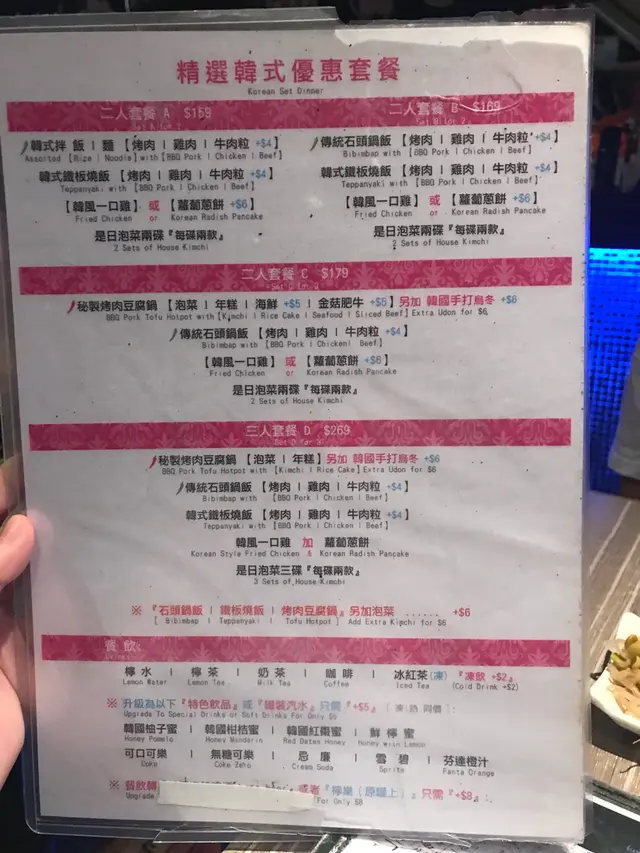 精選韓式優惠套餐
Korean Set Dinner
二人套餐 A $159
二人套餐 B $169
韓式拌 飯 | 麵 【烤肉 | 雞肉 | 牛肉粒 +$4】
Assorted [Rice | Noodle] with [BBQ Pork | Chicken | Beef]
韓式鐵板燒飯 【烤肉 | 雞肉 | 牛肉粒 +$4】
Teppanyaki with [BBQ Pork | Chicken | Beef]
【韓風一口雞】 或 【蘿蔔蔥餅 +$6】
Fried Chicken or Korean Radish Pancake
是日泡菜兩碟『每碟兩款』
2 Sets of House Kimchi
傳統石頭鍋飯 【烤肉 | 雞肉 | 牛肉粒 +$4】
Bibimbap with [BBQ Pork | Chicken | Beef]
韓式鐵板燒飯 【烤肉 | 雞肉 | 牛肉粒 +$4】
Teppanyaki with [BBQ Pork | Chicken | Beef]
【韓風一口雞】 或 【蘿蔔蔥餅 +$6】
Fried Chicken or Korean Radish Pancake
是日泡菜兩碟『每碟兩款』
2 Sets of House Kimchi
二人套餐 C $179
Set C for 2
秘製烤肉豆腐鍋 【泡菜 | 年糕 | 海鮮 +$5 | 金菇肥牛 +$5】另加 韓國手打烏冬 +$6
BBQ Pork Tofu Hotpot with [Kimchi | Rice Cake | Seafood | Sliced Beef] Extra Udon for $6
傳統石頭鍋飯 【烤肉 | 雞肉 | 牛肉粒 +$4】
Bibimbap with [BBQ Pork | Chicken | Beef]
【韓風一口雞】 或 【蘿蔔蔥餅 +$6】
Fried Chicken or Korean Radish Pancake
是日泡菜兩碟『每碟兩款』
2 Sets of House Kimchi
三人套餐 D $269
Set D for 3
秘製烤肉豆腐鍋 【泡菜 | 年糕】另加 韓國手打烏冬 +$6
BBQ Pork Tofu Hotpot with [Kimchi | Rice Cake] Extra Udon for $6
傳統石頭鍋飯 【烤肉 | 雞肉 | 牛肉粒 +$4】
Bibimbap with [BBQ Pork | Chicken | Beef]
韓式鐵板燒飯 【烤肉 | 雞肉 | 牛肉粒 +$4】
Teppanyaki with [BBQ Pork | Chicken | Beef]
韓風一口雞 加 蘿蔔蔥餅
Korean Style Fried Chicken & Korean Radish Pancake
是日泡菜三碟『每碟兩款』
3 Sets of House Kimchi
※ 『石頭鍋飯 | 鐵板燒飯 | 烤肉豆腐鍋』另加泡菜 ...... +$6
[ Bibimbap | Teppanyaki | Tofu Hotpot ] Add Extra Kimchi for $6
餐 飲
檸 水 | 檸 茶 | 奶 茶 | 咖 啡 | 冰紅茶(凍) 『凍飲 +$2』
Lemon Water Lemon Tea Milk Tea Coffee Iced Tea (Cold Drink +$2)
※ 升級為以下『特色飲品』或『罐裝汽水』只需『+$5』 ( 凍 | 熱 同價 ) :
Upgrade To Special Drinks or Soft Drinks For Only $5
韓國柚子蜜 | 韓國柑桔蜜 | 韓國紅棗蜜 | 鮮 檸 蜜
Honey Pomelo Honey Mandarin Red Dates Honey Honey with Lemon
可口可樂 | 無糖可樂 | 忌 廉 | 雪 碧 | 芬達橙汁
Coke Coke Zero Cream Soda Sprite Fanta Orange
※ 餐飲轉 或者『檸樂（原罐上）』只需『+$8』:
Upgrade For Only $8